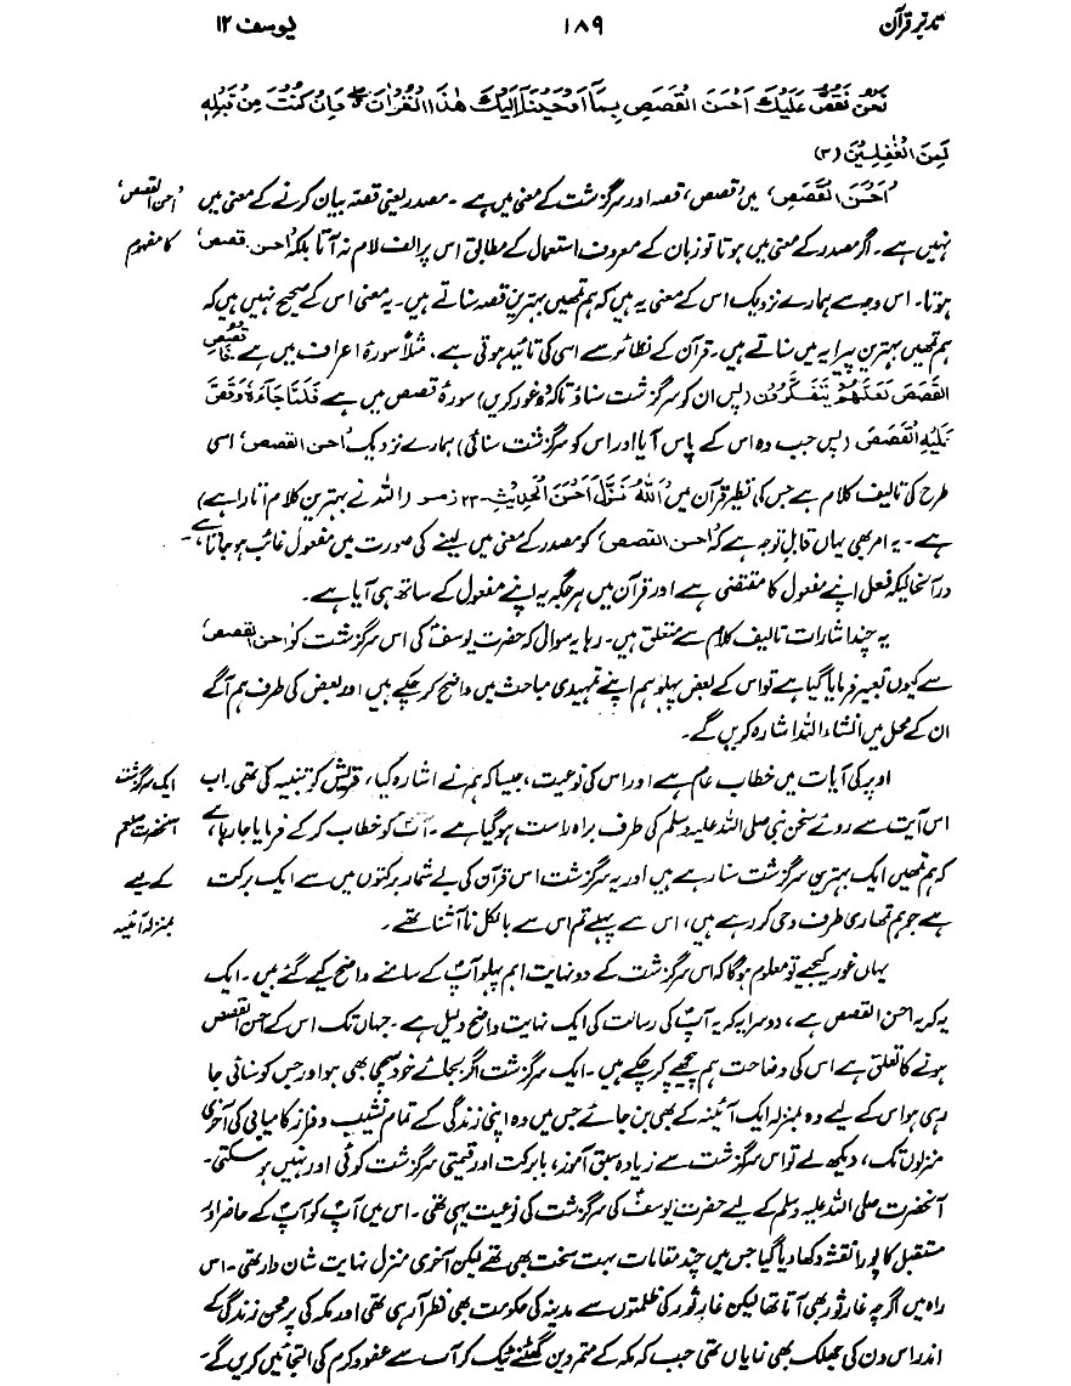 تدبر قرآن ۱۸۹ یوسف ۱۲
نَحْنُ نَقُصُّ عَلَيْكَ اَحْسَنَ الْقَصَصِ بِمَآ اَوْحَيْنَآ اِلَيْكَ هٰذَا الْقُرْاٰنَ ۖ وَاِنْ كُنْتَ مِنْ قَبْلِهٖ
لَمِنَ الْغٰفِلِيْنَ (۳)
'اَحْسَنَ الْقَصَصِ' میں 'قصص'، قصہ اور سرگزشت کے معنی میں ہے۔ مصدر یعنی قصہ بیان کرنے کے معنی میں
'احسن القصص'
نہیں ہے۔ اگر مصدر کے معنی میں ہوتا تو زبان کے معروف استعمال کے مطابق اس پر الف لام نہ آتا بلکہ 'احسن قصص'
کا مفہوم
ہوتا۔ اس وجہ سے ہمارے نزدیک اس کے معنی یہ ہیں کہ ہم تمھیں بہترین قصہ سناتے ہیں۔ یہ معنی اس کے صحیح نہیں ہیں کہ
ہم تمھیں بہترین پیرایہ میں سناتے ہیں۔ قرآن کے نظائر سے اسی کی تائید ہوتی ہے، مثلاً سورۂ اعراف میں ہے فَاقْصُصِ
الْقَصَصَ لَعَلَّهُمْ يَتَفَكَّرُوْنَ (پس ان کو سرگزشت سناؤ تاکہ وہ غور کریں) سورۂ قصص میں ہے فَلَمَّا جَآءَهٗ وَقَصَّ
عَلَيْهِ الْقَصَصَ (پس جب وہ اس کے پاس آیا اور اس کو سرگزشت سنائی) ہمارے نزدیک 'احسن القصص' اسی
طرح کی تالیف کلام ہے جس کی نظیر قرآن میں 'اَللّٰهُ نَزَّلَ اَحْسَنَ الْحَدِيْثِ ۲۳ زمر (اللہ نے بہترین کلام اتارا ہے)
ہے۔ یہ امر بھی یہاں قابل توجہ ہے کہ 'احسن القصص' کو مصدر کے معنی میں لینے کی صورت میں مفعول غائب ہو جاتا ہے،
درآنحالیکہ فعل اپنے مفعول کا مقتضی ہے اور قرآن میں ہر جگہ یہ اپنے مفعول کے ساتھ ہی آیا ہے۔
یہ چند اشارات تالیف کلام سے متعلق ہیں۔ رہا یہ سوال کہ حضرت یوسفؑ کی اس سرگزشت کو 'احسن القصص'
سے کیوں تعبیر فرمایا گیا ہے تو اس کے بعض پہلو ہم اپنے تمہیدی مباحث میں واضح کر چکے ہیں اور بعض کی طرف ہم آگے
ان کے محل میں انشاء اللہ اشارہ کریں گے۔
اوپر کی آیات میں خطاب عام ہے اور اس کی نوعیت، جیسا کہ ہم نے اشارہ کیا، قریش کو تنبیہ کی تھی۔ اب
ایک سرگزشت
اس آیت سے روئے سخن نبی صلی اللہ علیہ وسلم کی طرف براہ راست ہو گیا ہے۔ آپؐ کو خطاب کر کے فرمایا جا رہا ہے،
آنحضرت صلعم
کہ ہم تمھیں ایک بہترین سرگزشت سنا رہے ہیں اور یہ سرگزشت اس قرآن کی بے شمار برکتوں میں سے ایک برکت
کے لیے
ہے جو ہم تمھاری طرف وحی کر رہے ہیں، اس سے پہلے تم اس سے بالکل نا آشنا تھے۔
بمنزلہ آئینہ
یہاں غور کیجیے تو معلوم ہوگا کہ اس سرگزشت کے دو نہایت اہم پہلو آپؐ کے سامنے واضح کیے گئے ہیں۔ ایک
یہ کہ یہ احسن القصص ہے، دوسرا یہ کہ یہ آپؐ کی رسالت کی ایک نہایت واضح دلیل ہے۔ جہاں تک اس کے احسن القصص
ہونے کا تعلق ہے اس کی وضاحت ہم پیچھے کر چکے ہیں۔ ایک سرگزشت اگر بجائے خود سچی بھی ہو اور جس کو سنائی جا
رہی ہو اس کے لیے وہ بمنزلہ ایک آئینہ کے بھی بن جائے جس میں وہ اپنی زندگی کے تمام نشیب و فراز کامیابی کی آخری
منزلوں تک، دیکھ لے تو اس سرگزشت سے زیادہ سبق آموز، بابرکت اور قیمتی سرگزشت کوئی اور نہیں ہو سکتی۔
آنحضرت صلی اللہ علیہ وسلم کے لیے حضرت یوسفؑ کی سرگزشت کی نوعیت یہی تھی۔ اس میں آپؐ کو آپؐ کے حاضر اور
مستقبل کا پورا نقشہ دکھا دیا گیا جس میں چند مقامات بہت سخت بھی تھے لیکن آخری منزل نہایت شان دار تھی۔ اس
راہ میں اگرچہ غار ثور بھی آتا تھا لیکن غار ثور کی ظلمتوں سے مدینہ کی حکومت بھی نظر آ رہی تھی اور مکہ کی پر محن زندگی کے
اندر اس دن کی جھلک بھی نمایاں تھی جب کہ مکہ کے متمردین گھٹنے ٹیک کر آپ سے عفو و کرم کی التجائیں کریں گے۔